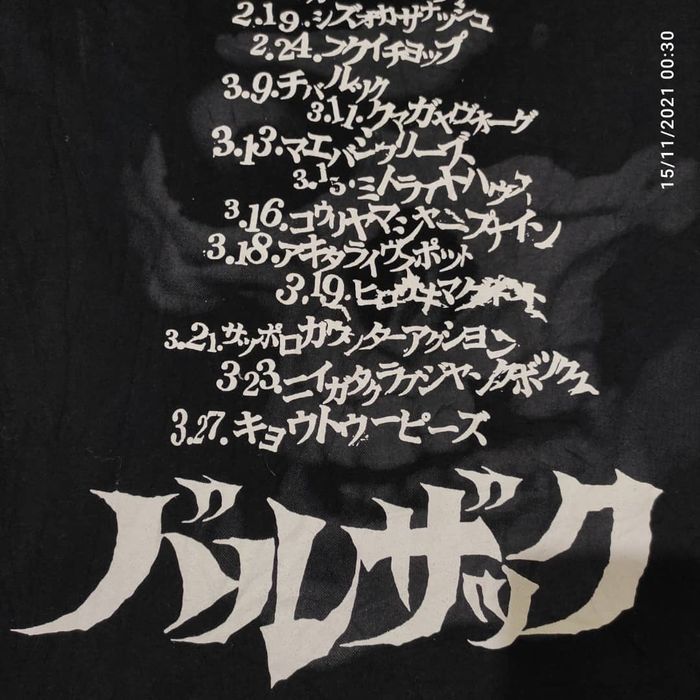 2.19.シズオカサナッシュ
2.24.フクイチョップ
3.9.チバルック
3.11.クマガヤヴォーグ
3.13.マエバシラリーズ
3.15.ミトライトハウス
3.16.コウリヤマシャープナイン
3.18.アキタライヴスポット
3.19.ヒロサキマグネット
3.21.サッポロカウンターアクション
3.23.ニイガタクラブジャンクボックス
3.27.キョウトウーピーズ
バルザック
15/11/2021 00:30